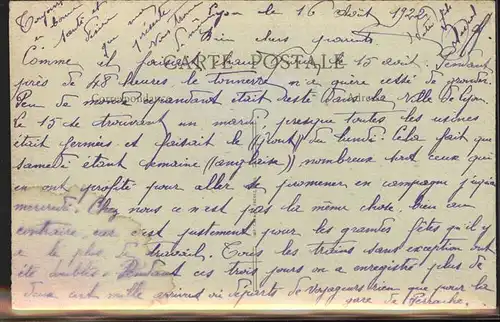 Lyon le 16 août 1922
Bien chers parents
CARTE POSTALE
Correspondance
Adresse
Comme il faisait chaud le 15 août. Pendant
près de 48 heures le tonnerre n'a guère cessé de gronder.
Peu de monde cependant était resté dans la ville de Lyon.
Le 15 se trouvant un mardi presque toutes les usines
étaient fermées et faisait le (pont) du lundi. Cela fait que
samedi étant semaine (anglaise) nombreux sont ceux qui
en ont profité pour aller se promener en campagne jusqu'à
mercredi. Chez nous ce n'est pas la même chose, bien au
contraire, car c'est justement pour les grandes fêtes qu'il y
a le plus de travail. Tous les trains sans exception ont
été doublés. Pendant ces trois jours on a enregistré plus de
deux cent mille arrivées ou départs de voyageurs rien que pour la
gare de Perrache.